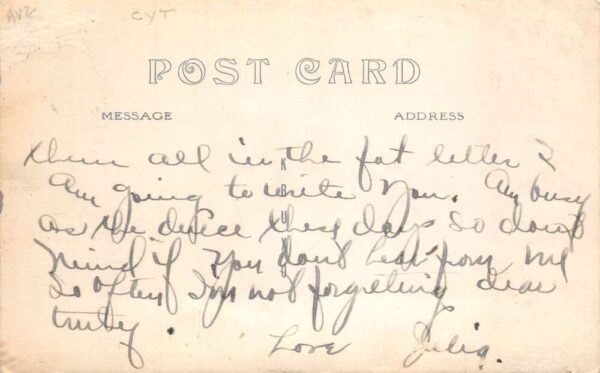 AVZ CYT
POST CARD
MESSAGE ADDRESS
them all in the fat letter I
Am going to write you. Am busy
as the duece these days so don't
mind if you don't hear from me
so often I'm not forgetting dear
truly.
Love Julia.